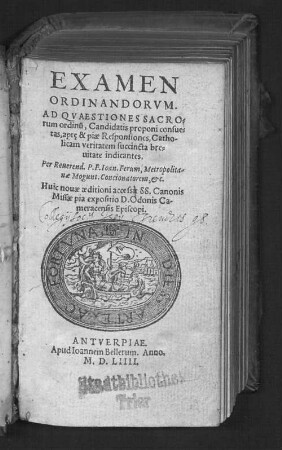 EXAMEN
ORDINANDORVM.
AD QVAESTIONES SACRO-
rum ordinū, Candidatis proponi consuei
tas, aptę & piæ Responsiones, Catho-
licam veritatem succincta bre-
uitate indicantes.
Per Reuerend. P.F. Ioan. Ferum, Metropolita-
næ Mogunt. Concionatorem, &c.
Huic nouæ æditioni accessit SS. Canonis
Missæ pia expositio D. Odonis Ca-
meracensis Episcopi.
98
FORTVNA IN DIES ARTE AC
ANTVERPIAE.
Apud Ioannem Bellerum. Anno.
M. D. LIIII.
Stadtbibliothek
Trier